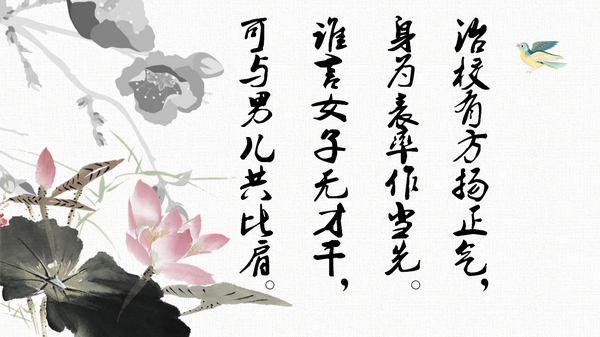 治校有方扬正气，
身为表率作当先。
谁言女子无才干，
可与男儿共比肩。